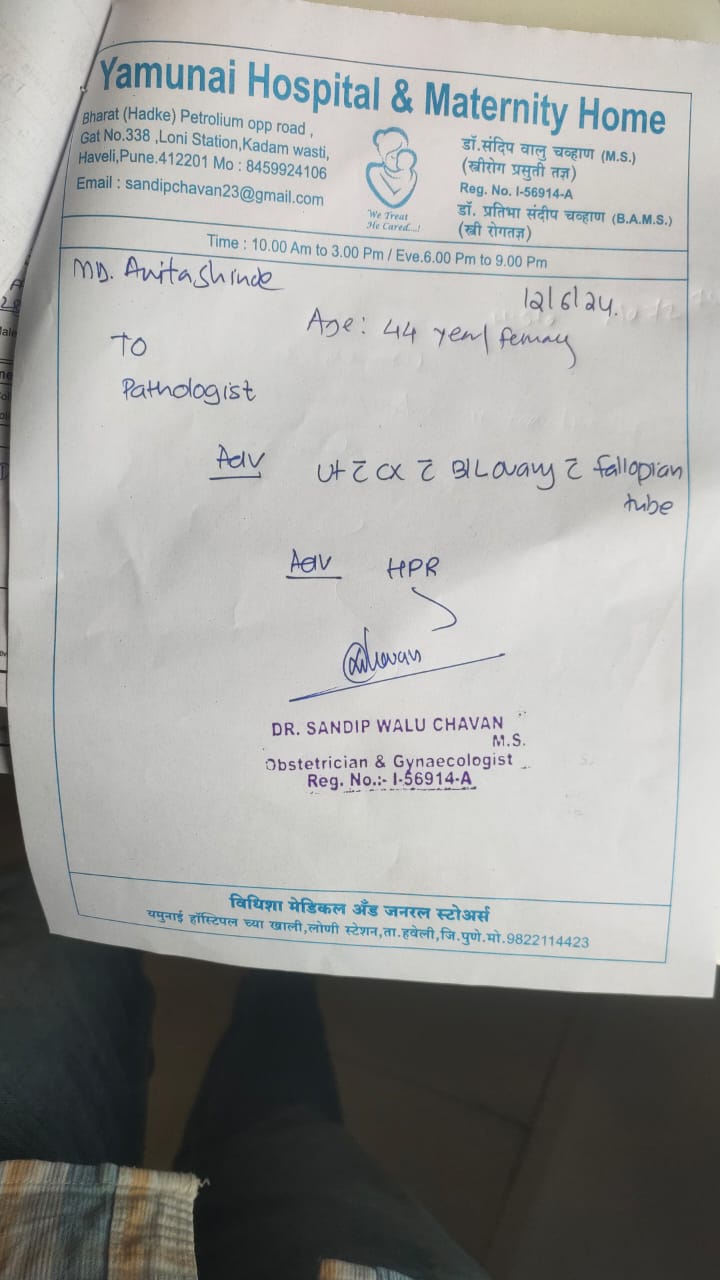 Yamunai Hospital & Maternity Home
Bharat (Hadke) Petrolium opp road ,
Gat No.338 ,Loni Station,Kadam wasti,
Haveli,Pune.412201 Mo : 8459924106
Email : sandipchavan23@gmail.com
We Treat
He Cared...!
डॉ.संदिप वालु चव्हाण (M.S.)
(स्त्रीरोग प्रसुती तज्ञ)
Reg. No. I-56914-A
डॉ. प्रतिभा संदीप चव्हाण (B.A.M.S.)
(स्त्री रोगतज्ञ)
Time : 10.00 Am to 3.00 Pm / Eve.6.00 Pm to 9.00 Pm
Anita Shinde
12/6/24.
Age: 44 year/
To
Pathologist
Adv Ut c̄ CX c̄ B/L ovary c̄ fallopian
tube
Adv HPR
DR. SANDIP WALU CHAVAN
M.S.
Obstetrician & Gynaecologist
Reg. No.:- I-56914-A
विधिशा मेडिकल अँड जनरल स्टोअर्स
यमुनाई हॉस्टिपल च्या खाली,लोणी स्टेशन,ता.हवेली,जि.पुणे.मो.9822114423